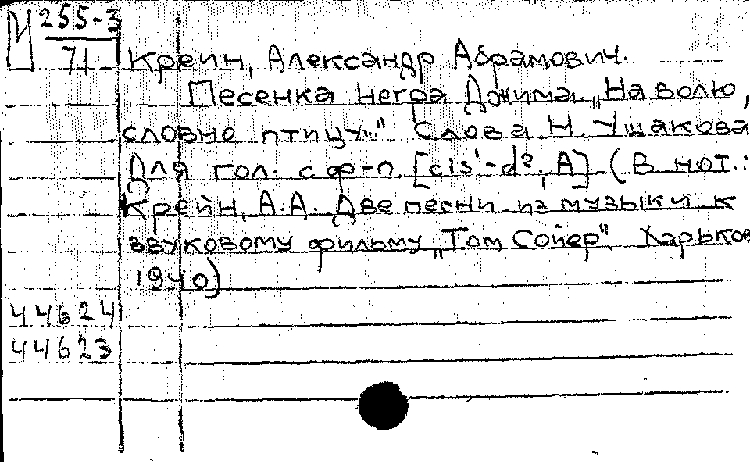 И 255-3
71
Крейн, Александр Абрамович.
Песенка негра Джима „На волю,
словно птицу..." Слова Н. Ушакова
Для гол. с ф-п. [cis¹-d², A] (В нот.:
Крейн, А.А. Две песни из музыки к
звуковому фильму „Том Сойер". Харьков
1940)
44624
44623